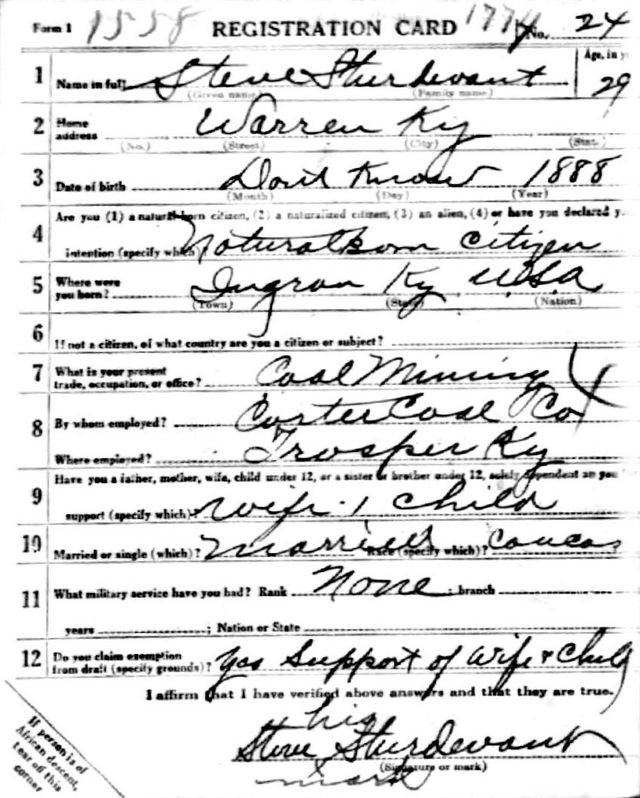 Form 1 1558 REGISTRATION CARD 1774 No. 24
1 Name in full Steve Sturdevant Age, in y
(Given name) (Family name) 29
2 Home address Warren Ky
(No.) (Street) (City) (State)
3 Date of birth Dont Know 1888
(Month) (Day) (Year)
4 Are you (1) a natural-born citizen, (2) a naturalized citizen, (3) an alien, (4) or have you declared y
intention (specify which)? Naturalborn citizen
5 Where were you born? Ingram Ky U.S.A
(Town) (State) (Nation)
6 If not a citizen, of what country are you a citizen or subject?
7 What is your present trade, occupation, or office? Coal Mining
8 By whom employed? Carter Coal Co
Where employed? Trosper Ky
9 Have you a father, mother, wife, child under 12, or a sister or brother under 12, solely dependent on you
support (specify which)? Wife 1 child
10 Married or single (which)? Married Race (specify which)? Caucas
11 What military service have you had? Rank None ; branch
years ; Nation or State
12 Do you claim exemption from draft (specify grounds)? Yas Support of Wife & Child
I affirm that I have verified above answers and that they are true.
his
Steve X Sturdevant
(Signature or mark)
mark
If person is of
African descent,
tear off this
corner